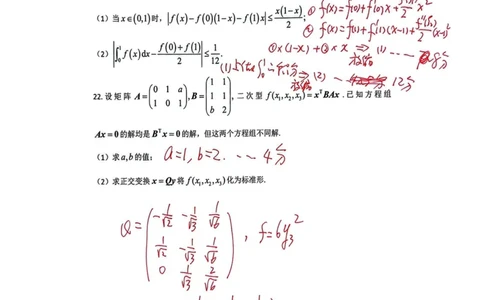 (1) 当x∈(0,1)时, |f(x)−f(0)(1−x)−f(1)x|≤x(1−x)/2;
① f(x)=f(0)+f'(0)x+
② f(x)=f(1)+f'(1)(x−1)+
①×(1−x)+②×x ⇒ (1) ····· 8分
(2) |∫₀¹f(x)dx−(f(0)+f(1))/2|≤1/12.
⇒ (2)
12分
22.设矩阵A=(0 1 a; 1 0 1),B=(1 1; 1 1; b 2), 二次型 f(x₁,x₂,x₃)=xᵀBAx.已知方程组
Ax=0的解均是Bᵀx=0的解,但这两个方程组不同解.
(1) 求a,b的值; a=1,b=2. ···· 4分
(2) 求正交变换x=Qy将f(x₁,x₂,x₃)化为标准形.
Q=(−1/√2 −1/√3 1/√6; 1/√2 −1/√3 1/√6; 0 1/√3 2/√6), f=6y₃²